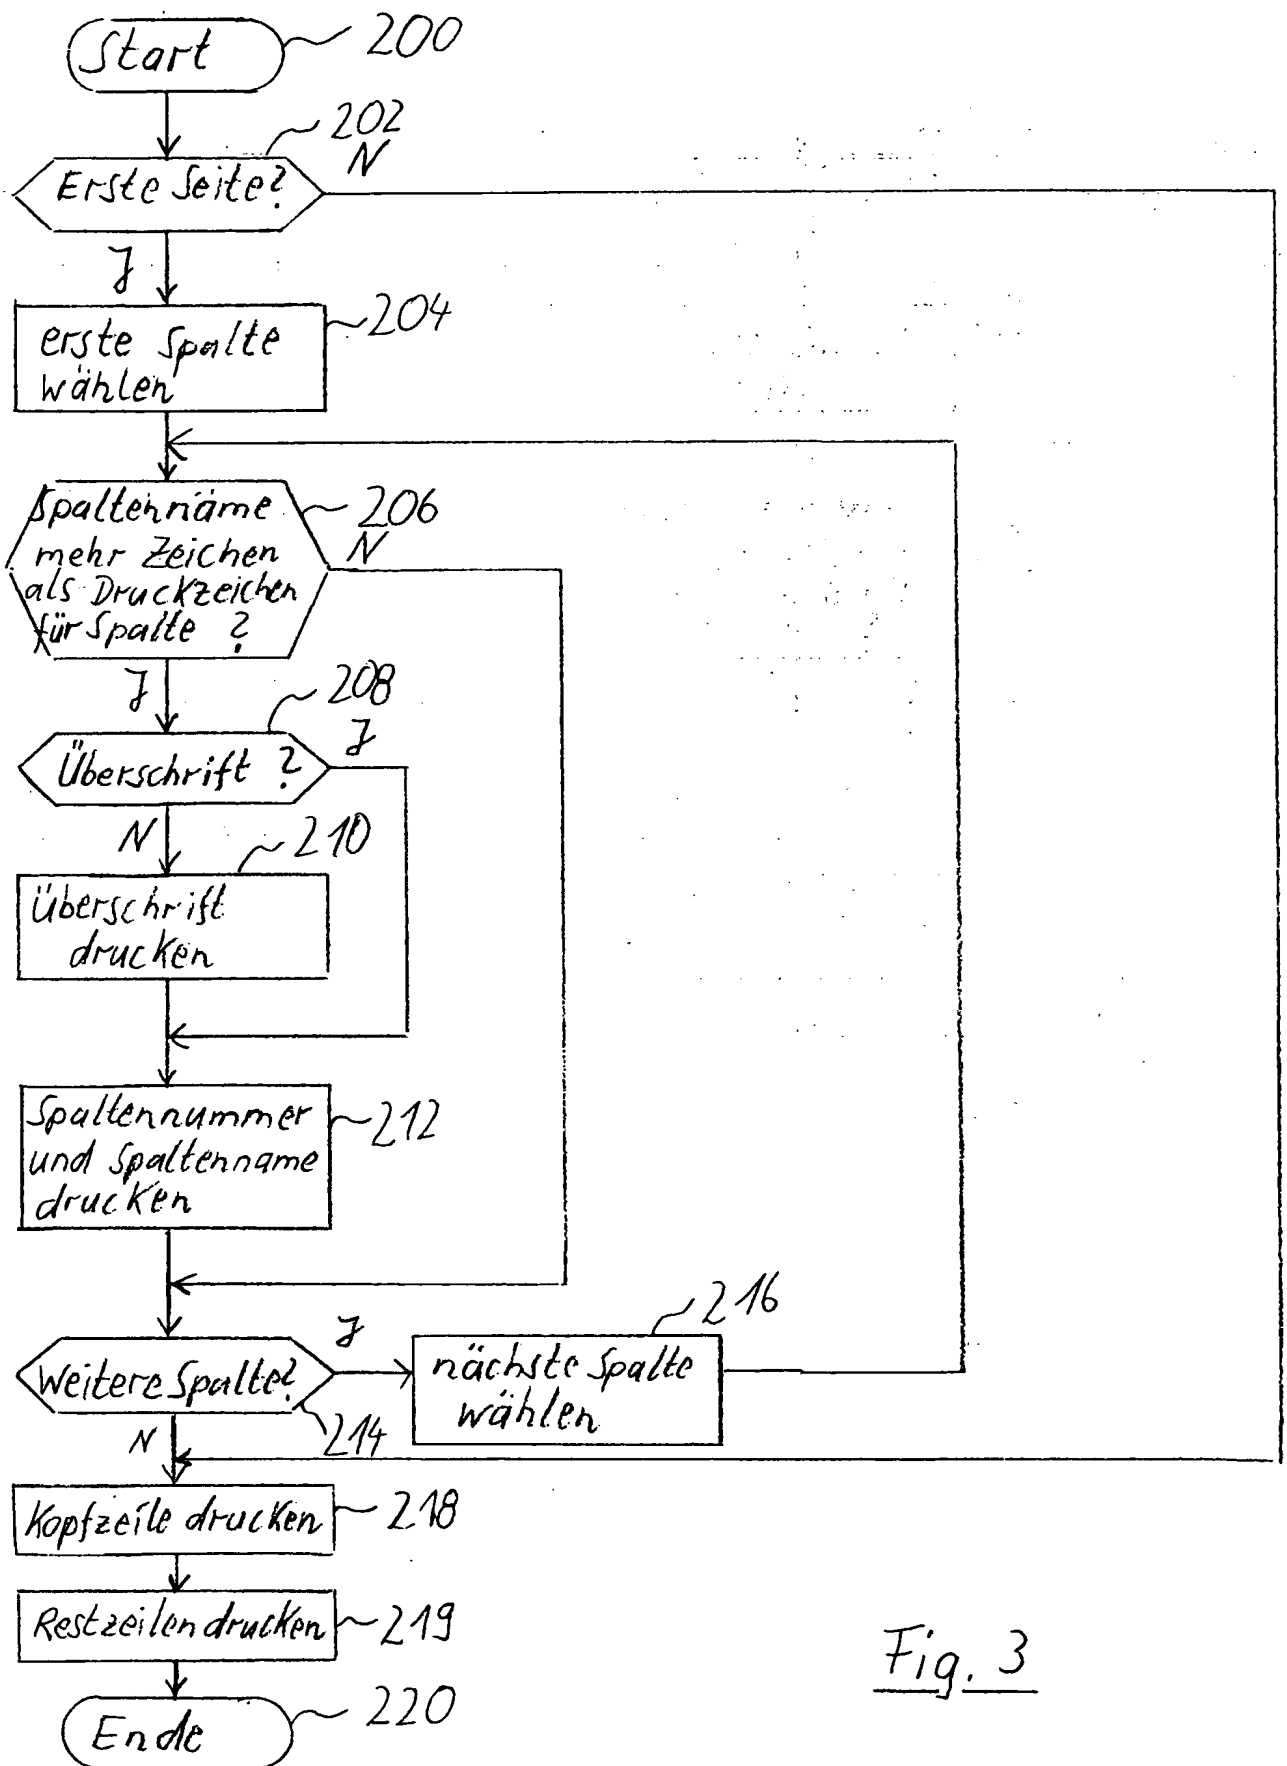 Start
200
202
N
Erste Seite?
J
204
erste Spalte
wählen
Spaltenname
mehr Zeichen
als Druckzeichen
für Spalte ?
206
N
J
208
Überschrift ?
J
N
210
Überschrift
drucken
Spaltennummer
und Spaltenname
drucken
212
Weitere Spalte?
J
214
216
nächste Spalte
wählen
N
Kopfzeile drucken
218
Restzeilen drucken
219
Ende
220
Fig. 3